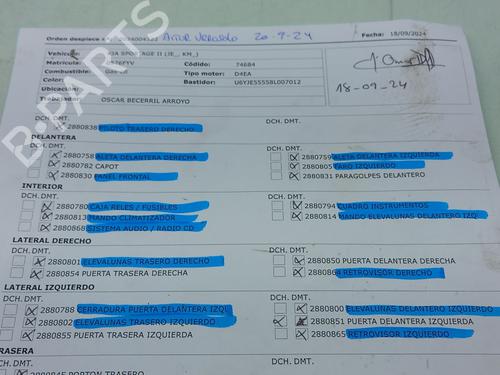 Orden despiece Artur Veraldo 20-9-24 Fecha: 18/09/2024
Vehículo: KIA SPORTAGE II (JE_, KM_)
Matrícula: Código: 74684
Combustible: Tipo motor: D4EA
Color: Bastidor: U6YJE55558L007012
Ubicación:
18-09-24
Trabajador OSCAR BECERRIL ARROYO
DCH. DMT. DCH. DMT.
2880838 PILOTO TRASERO DERECHO
DELANTERA
2880758 ALETA DELANTERA DERECHA 2880759 ALETA DELANTERA IZQUIERDA
2880782 CAPOT 2880805 FARO IZQUIERDO
2880830 PANEL FRONTAL 2880831 PARAGOLPES DELANTERO
INTERIOR
DCH. DMT. DCH. DMT.
2880780 CAJA RELES / FUSIBLES 2880794 CUADRO INSTRUMENTOS
2880813 MANDO CLIMATIZADOR 2880814 MANDO ELEVALUNAS DELANTERO IZQ
2880868 SISTEMA AUDIO / RADIO CD
LATERAL DERECHO
DCH. DMT. DCH. DMT.
2880801 ELEVALUNAS TRASERO DERECHO 2880850 PUERTA DELANTERA DERECHA
2880854 PUERTA TRASERA DERECHA 2880864 RETROVISOR DERECHO
LATERAL IZQUIERDO
DCH. DMT. DCH. DMT.
2880788 CERRADURA PUERTA DELANTERA IZQU 2880800 ELEVALUNAS DELANTERO IZQUIERDO
2880802 ELEVALUNAS TRASERO IZQUIERDO 2880851 PUERTA DELANTERA IZQUIERDA
2880855 PUERTA TRASERA IZQUIERDA 2880865 RETROVISOR IZQUIERDO
TRASERA
DCH. DMT. DCH. DMT.
PORTON TRASERO
B-PARTS